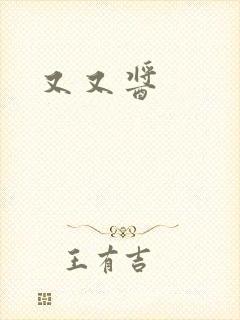 又又醬
王有吉